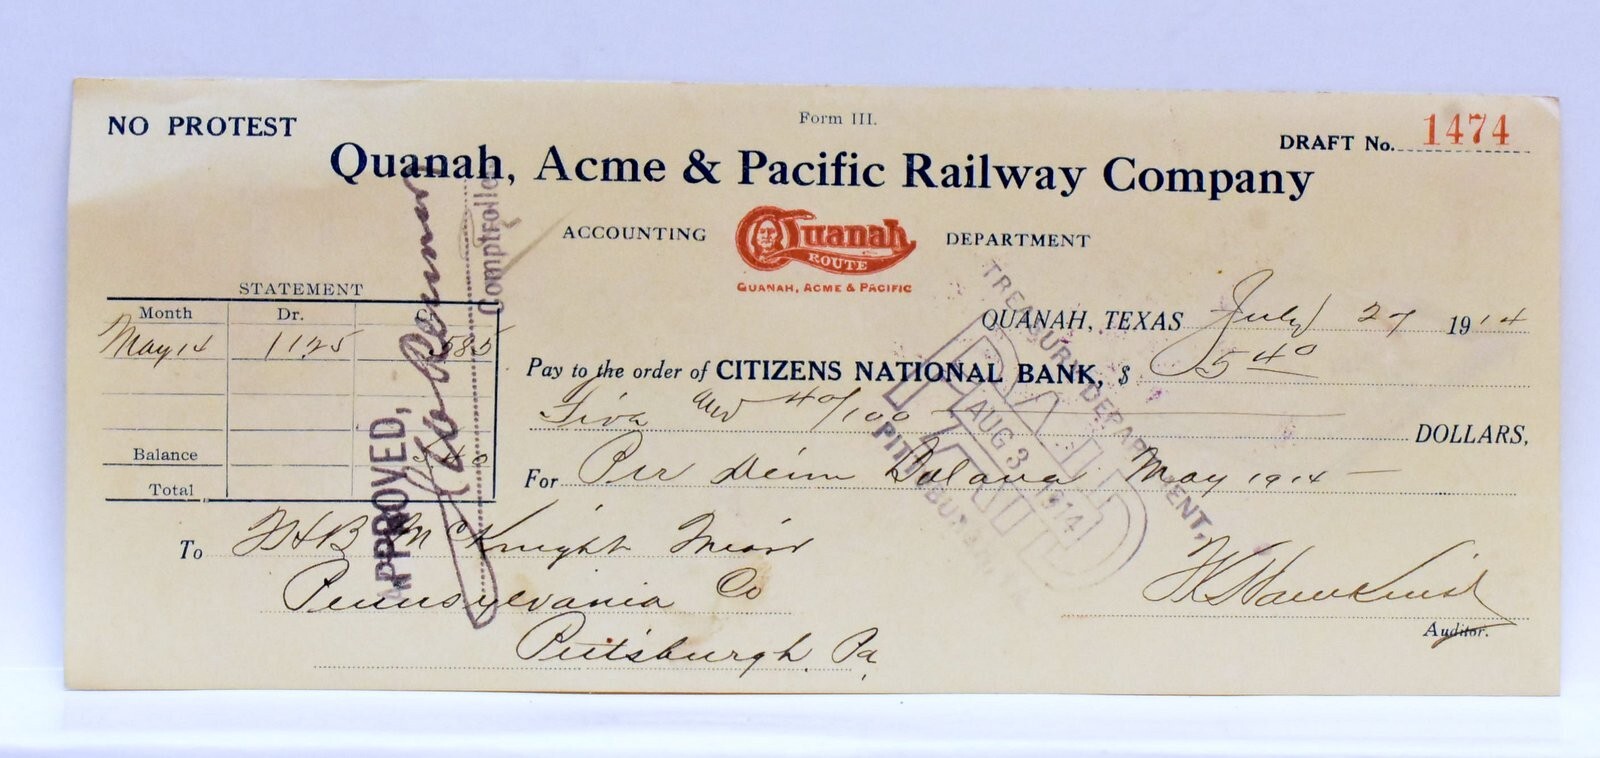 NO PROTEST
Form III.
DRAFT No. 1474
Quanah, Acme & Pacific Railway Company
ACCOUNTING DEPARTMENT
Quanah
ROUTE
QUANAH, ACME & PACIFIC
STATEMENT
Month Dr.
May 14 1125 585
Balance 540
Total
APPROVED,
Comptroller
QUANAH, TEXAS July 27 1914
Pay to the order of CITIZENS NATIONAL BANK, $ 5 40
Five and 40/100 DOLLARS,
For Per Diem Balance May 1914
TREASURY DEPARTMENT,
PAID
AUG 3 1914
To McKnight
Pennsylvania Co
Pittsburgh, Pa,
Auditor.